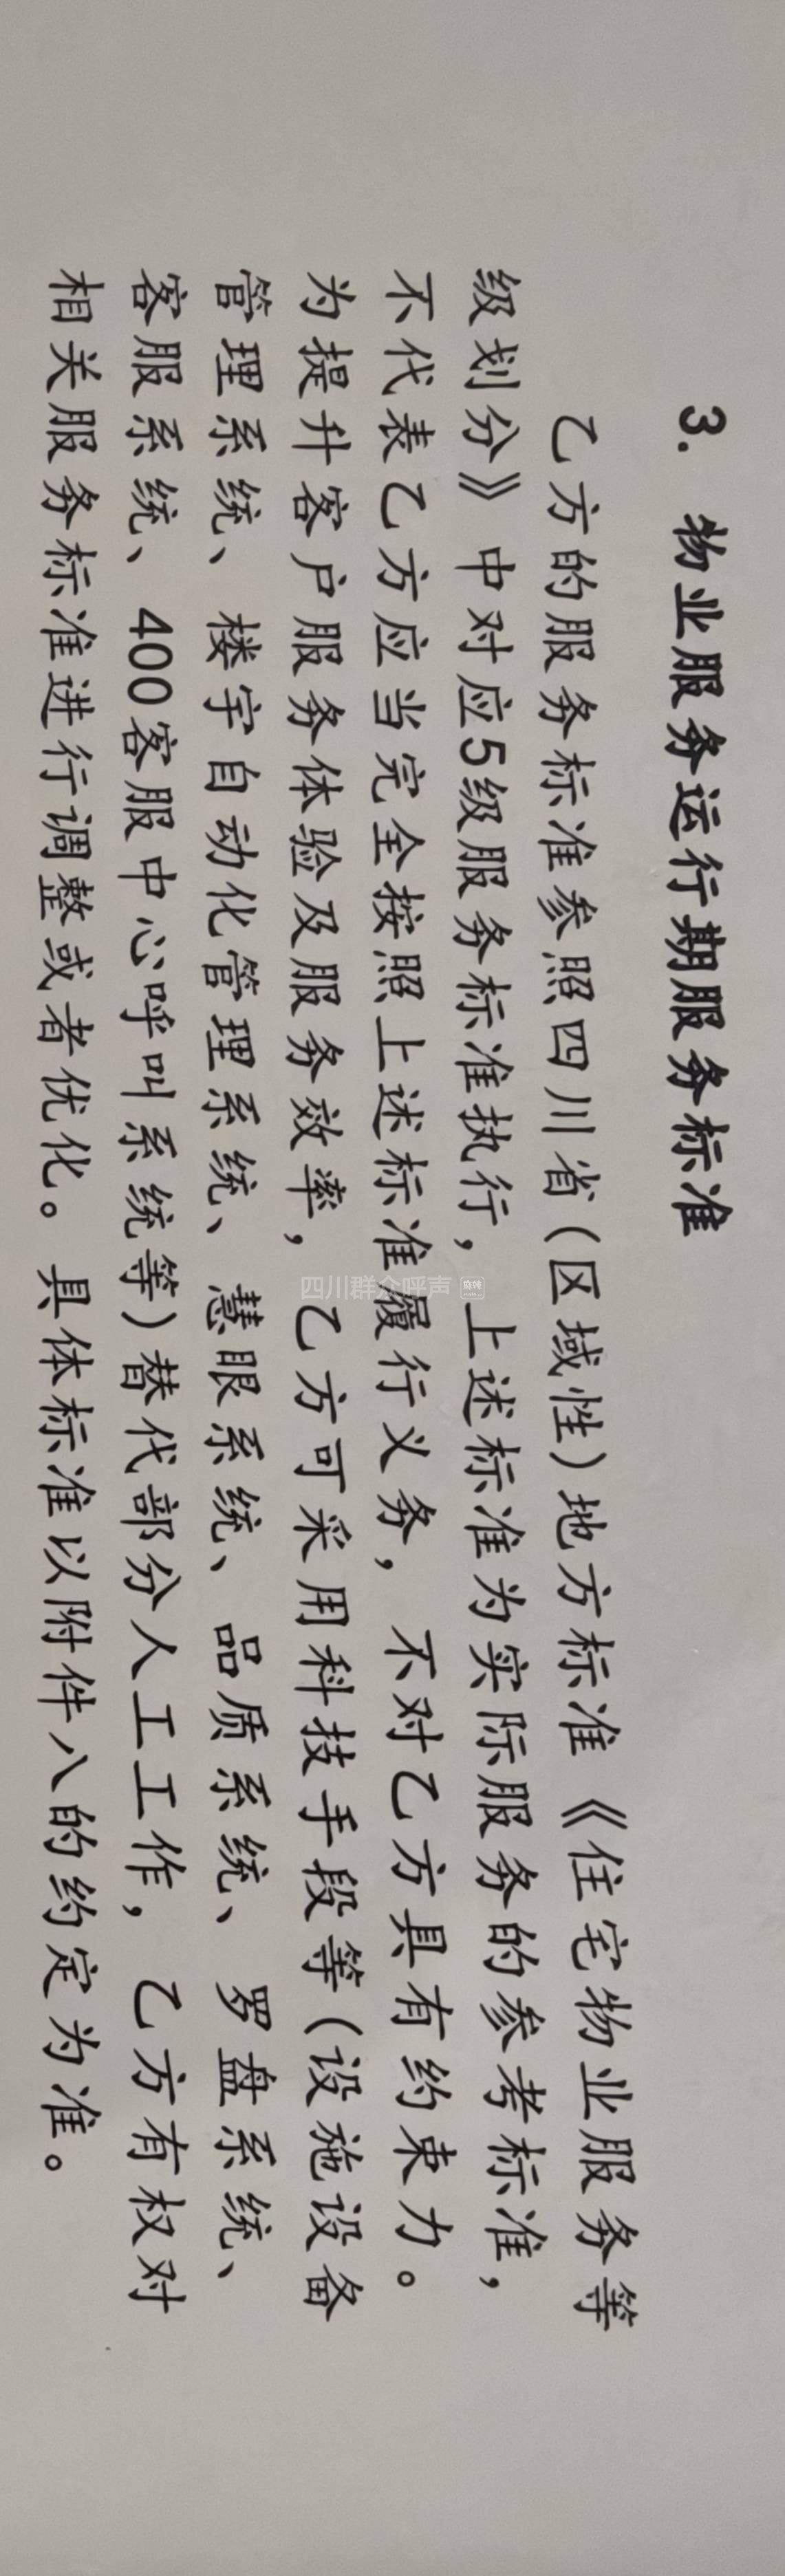 3. 物业服务运行期服务标准
乙方的服务标准参照四川省(区域性)地方标准《住宅物业服务等
级划分》中对应5级服务标准执行，上述标准为实际服务的参考标准，
不代表乙方应当完全按照上述标准履行义务，不对乙方具有约束力。
为提升客户服务体验及服务效率，乙方可采用科技手段等(设施设备
管理系统、楼宇自动化管理系统、慧眼系统、品质系统、罗盘系统、
客服系统、400客服中心呼叫系统等)替代部分人工工作，乙方有权对
相关服务标准进行调整或者优化。具体标准以附件八的约定为准。
四川群众呼声